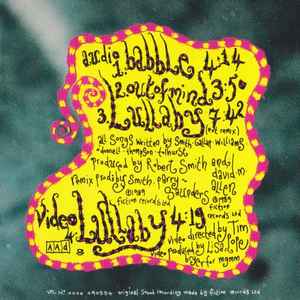 audio
1. babble 4:14
2. out of mind 3:50
3. Lullaby 7:42
(ext remix)
all songs written by Smith. Gallup. Williams
o'donnell thompson tolhurst
produced by Robert Smith and
david m allen
remix produced by Smith. parry
saunders
fiction records Ltd
fiction records Ltd
video
4. Lullaby 4:19
video directed by Tim
pope
produced by Lisa
bryer for mgmm
AAD
original sound recording made by fiction records Ltd